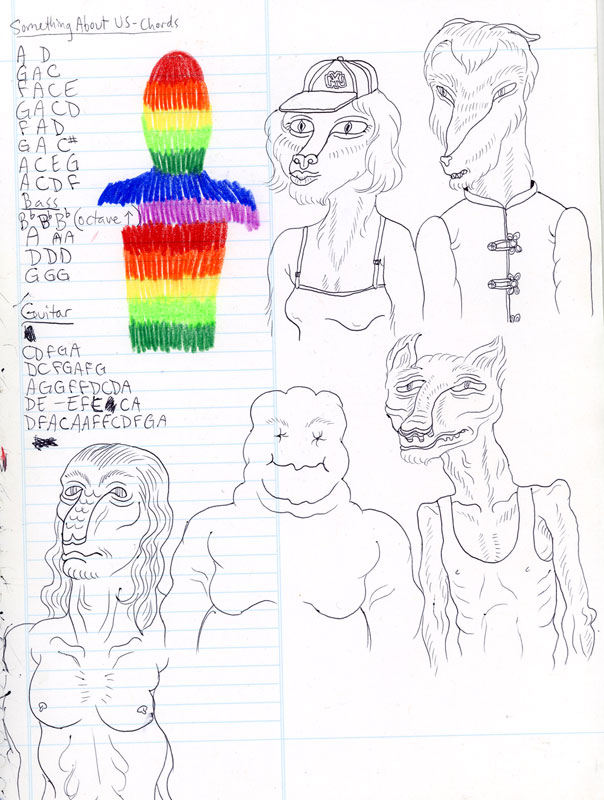 Something About US - Chords
A D
G A C
F A C E
G A C D
F A D
G A C#
A C E G
A C D F
Bass
Bb Bb Bb (octave ↑
A AA
DDD
GGG
Guitar
CDFGA
DCFGAFG
AGGFFDCDA
DE-EFE CA
DFACAAFFCDFGA